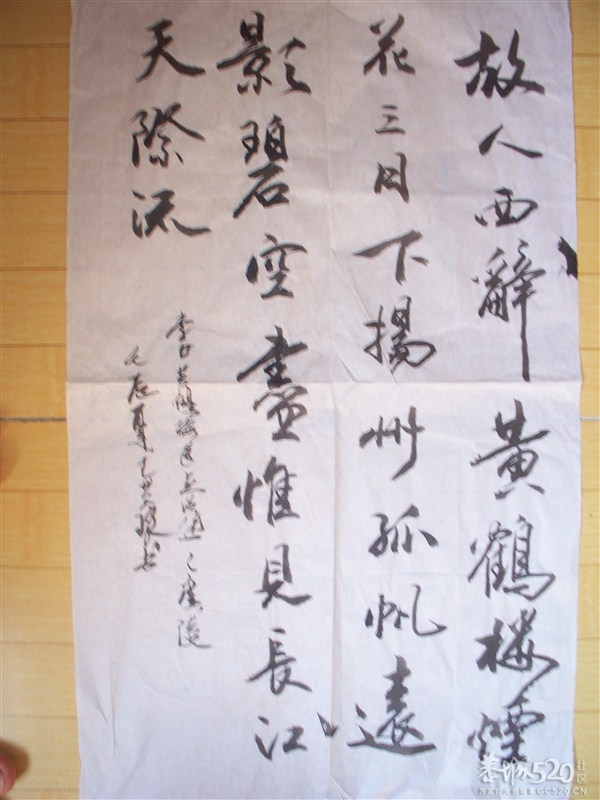 故人西辭黃鶴楼煙
花三月下揚州孤帆遠
影碧空盡惟見長江
天際流
李白黃鶴楼送孟浩然之廣陵
恭城520社区
GC520.CN